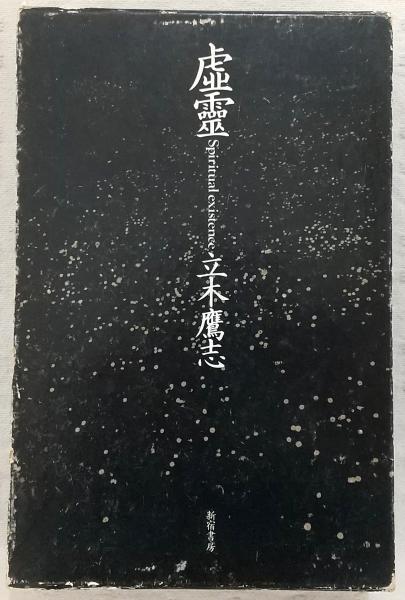 虛靈
Spiritual existence
立木鷹志
新宿書房